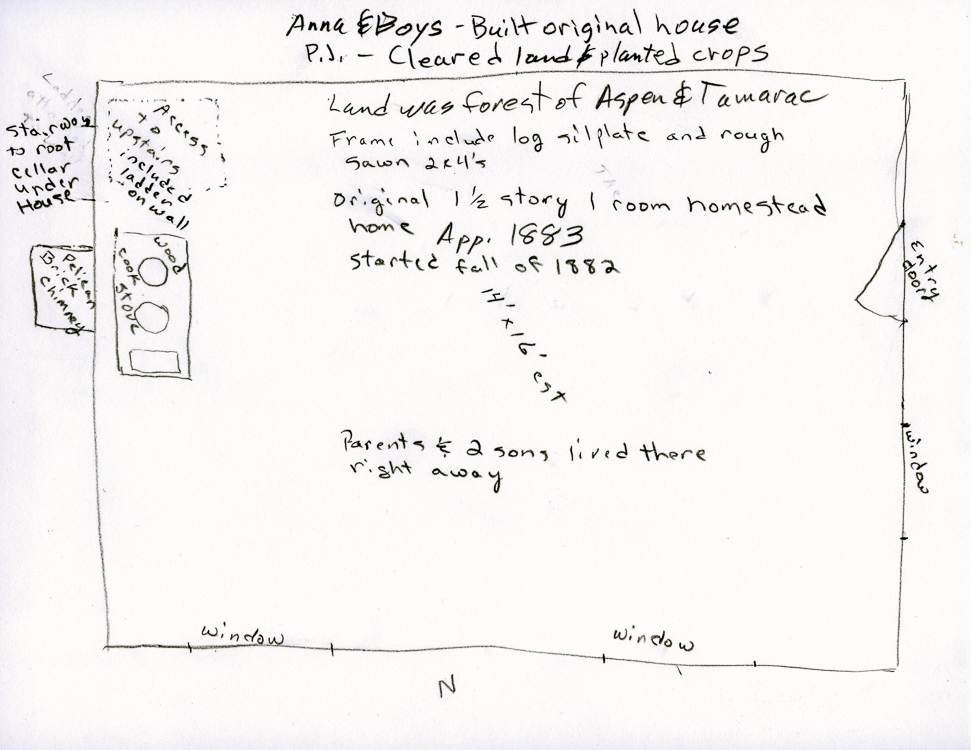 Anna & Boys - Built original house
P.J. - Cleared land & planted crops
Land was forest of Aspen & Tamarac
Frame include log silplate and rough
sawn 2x4's
Original 1 1/2 story 1 room homestead
home App. 1883
started fall of 1882
14' x 16' est
Parents & 2 sons lived there
right away
Stairway
to root
cellar
under
House
Access
to
upstairs
included
ladder
on wall
wood
cook
stove
Pelican
Brick
chimney
Entry
door
window
window
window
N